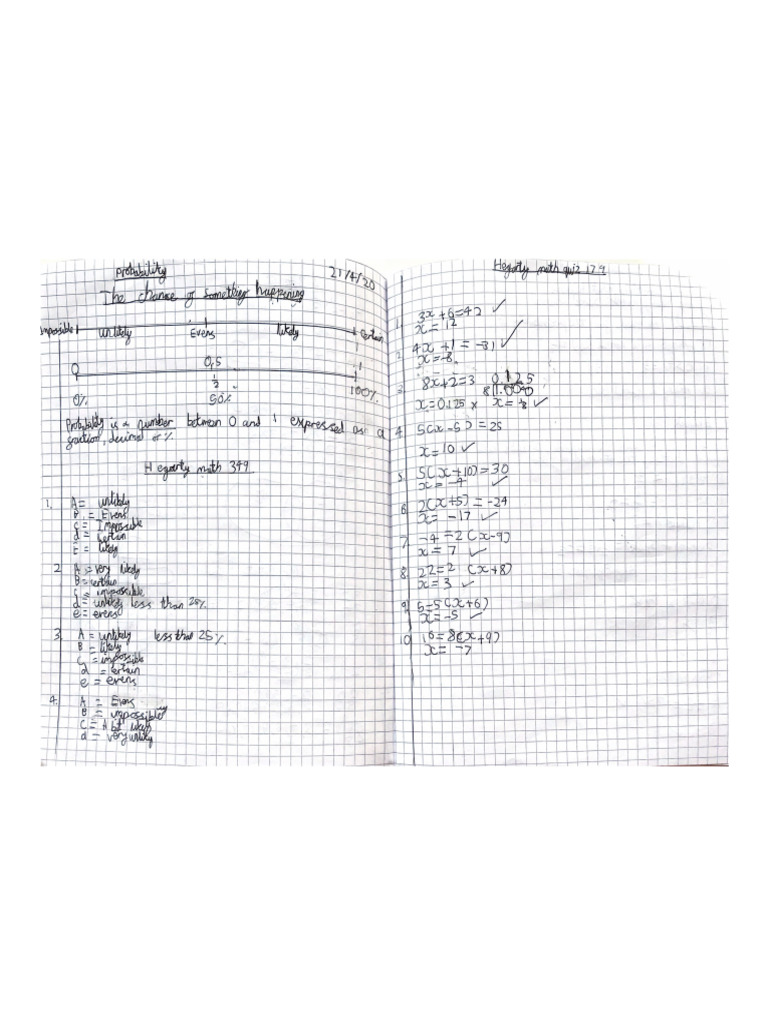 Probability
21/4/20
The chance of something happening
Impossible unlikely Evens likely certain
0 0,5 1
1/2
0% 50% 100%
Probability is a number between 0 and 1 expressed as a
fraction, decimal or %.
Hegarty math 349
1. A = unlikely
B = Evens
C = Impossible
d = certain
E = likely
2 A = very likely
B = certain
C = impossible
d = unlikely less than 25%
e = evens
3. A = unlikely less than 25%
B = likely
C = impossible
d = certain
e = evens
4. A = Evens
B = impossible
C = A bt likely
d = very unlikely
Hegarty math quiz 179
1. 3x + 6 = 42 ✓
x = 12
2 4x + 1 = -31 ✓
x = -8
3 8x + 2 = 3 0.125
x = 0.125 x ✓
4. 5(x - 5) = 25
x = 10 ✓
5. 5(x + 10) = 30
x = -4 ✓
6. 2(x + 5) = -24
x = -17 ✓
7. -4 = 2(x - 9)
x = 7 ✓
8. 22 = 2 (x + 8)
x = 3 ✓
9. 5 = 5(x + 6)
x = -5 ✓
10. 16 = 8(x + 9)
x = -7